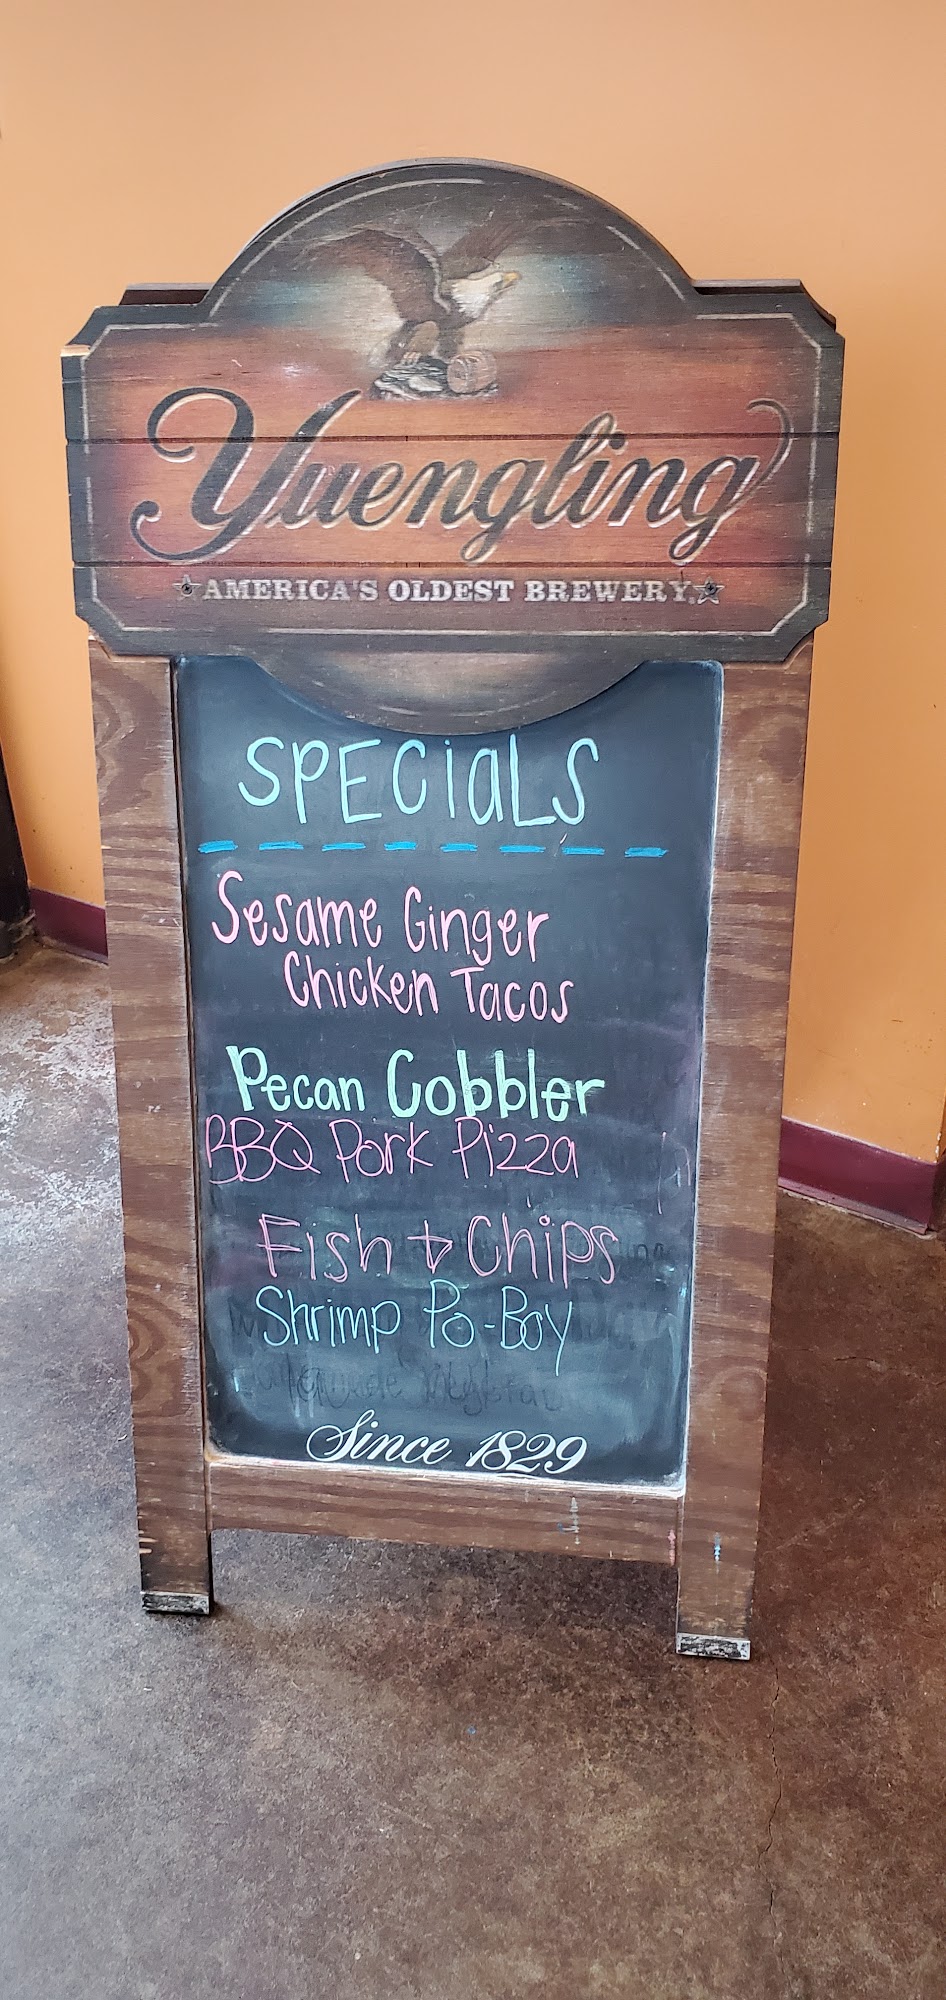 Yuengling
AMERICA'S OLDEST BREWERY
SPECiALS
Sesame Ginger
Chicken Tacos
Pecan Cobbler
BBQ Pork Pizza
Fish & Chips
Shrimp Po-Boy
Since 1829